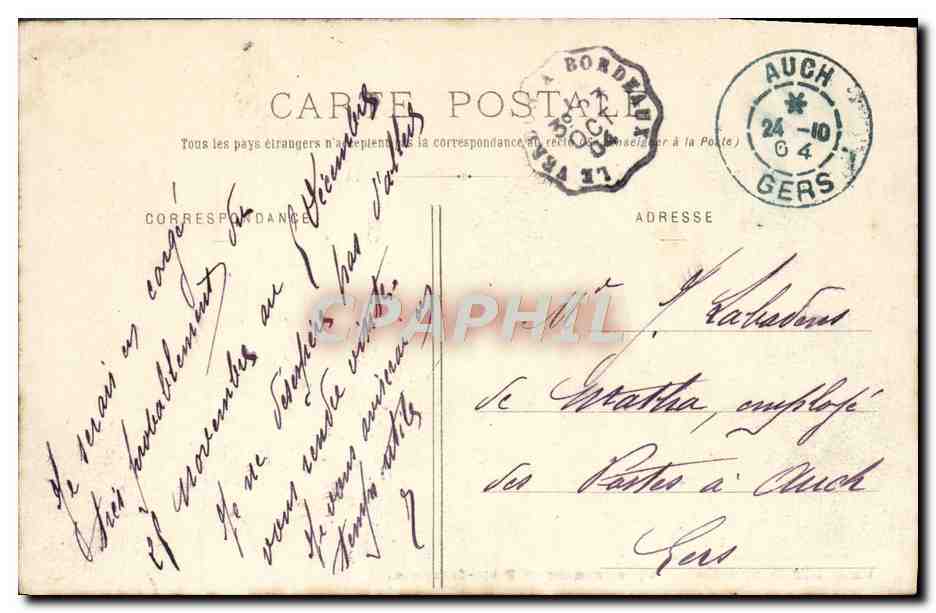 CARTE POSTALE
Tous les pays étrangers n'acceptent pas la correspondance au recto (Se renseigner à la Poste)
CORRESPONDANCE
ADRESSE
A BORDEAUX
3°
OCT
04
LE VRAC
AUCH
24 -10
04
GERS
Je serais en congé
très probablement du
25 Novembre au 5 Décembre
Je ne désespère pas d'aller
vous rendre visite.
Je vous aviserai en
temps utile
CPAPHIL
Mr J Labadens
de Matha, employé
des Postes à Auch
Gers